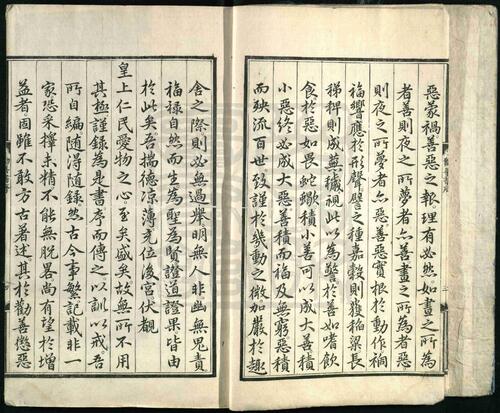 惡蒙禍善惡之報理有必然如晝之所為
者善則夜之所夢者亦善晝之所為者惡
則夜之所夢者亦惡善惡實根於動作禍
福響應於形聲譬之種嘉穀則獲稻粱長
稊稗則成蕪穢視此以為警於善如嗜飲
食於惡如畏蛇蝎積小善可以成大善積
小惡終必成大惡善積而福及無窮惡積
而殃流百世致謹於幾動之微加嚴於趣
舍之際則必無過舉明無人非幽無鬼責
福祿自然而生為聖為賢證道證果皆由
於此矣吾揣德涼薄充位後宮伏覩
皇上仁民愛物之心至矣盛矣故無所不用
其極謹錄為是書序而傳之以訓以戒吾
所自編隨得隨錄然古今事繁記載非一
家恐采擇未精不能無脫畧尚有望於增
益者固雖不敢方古著述其於勸善懲惡